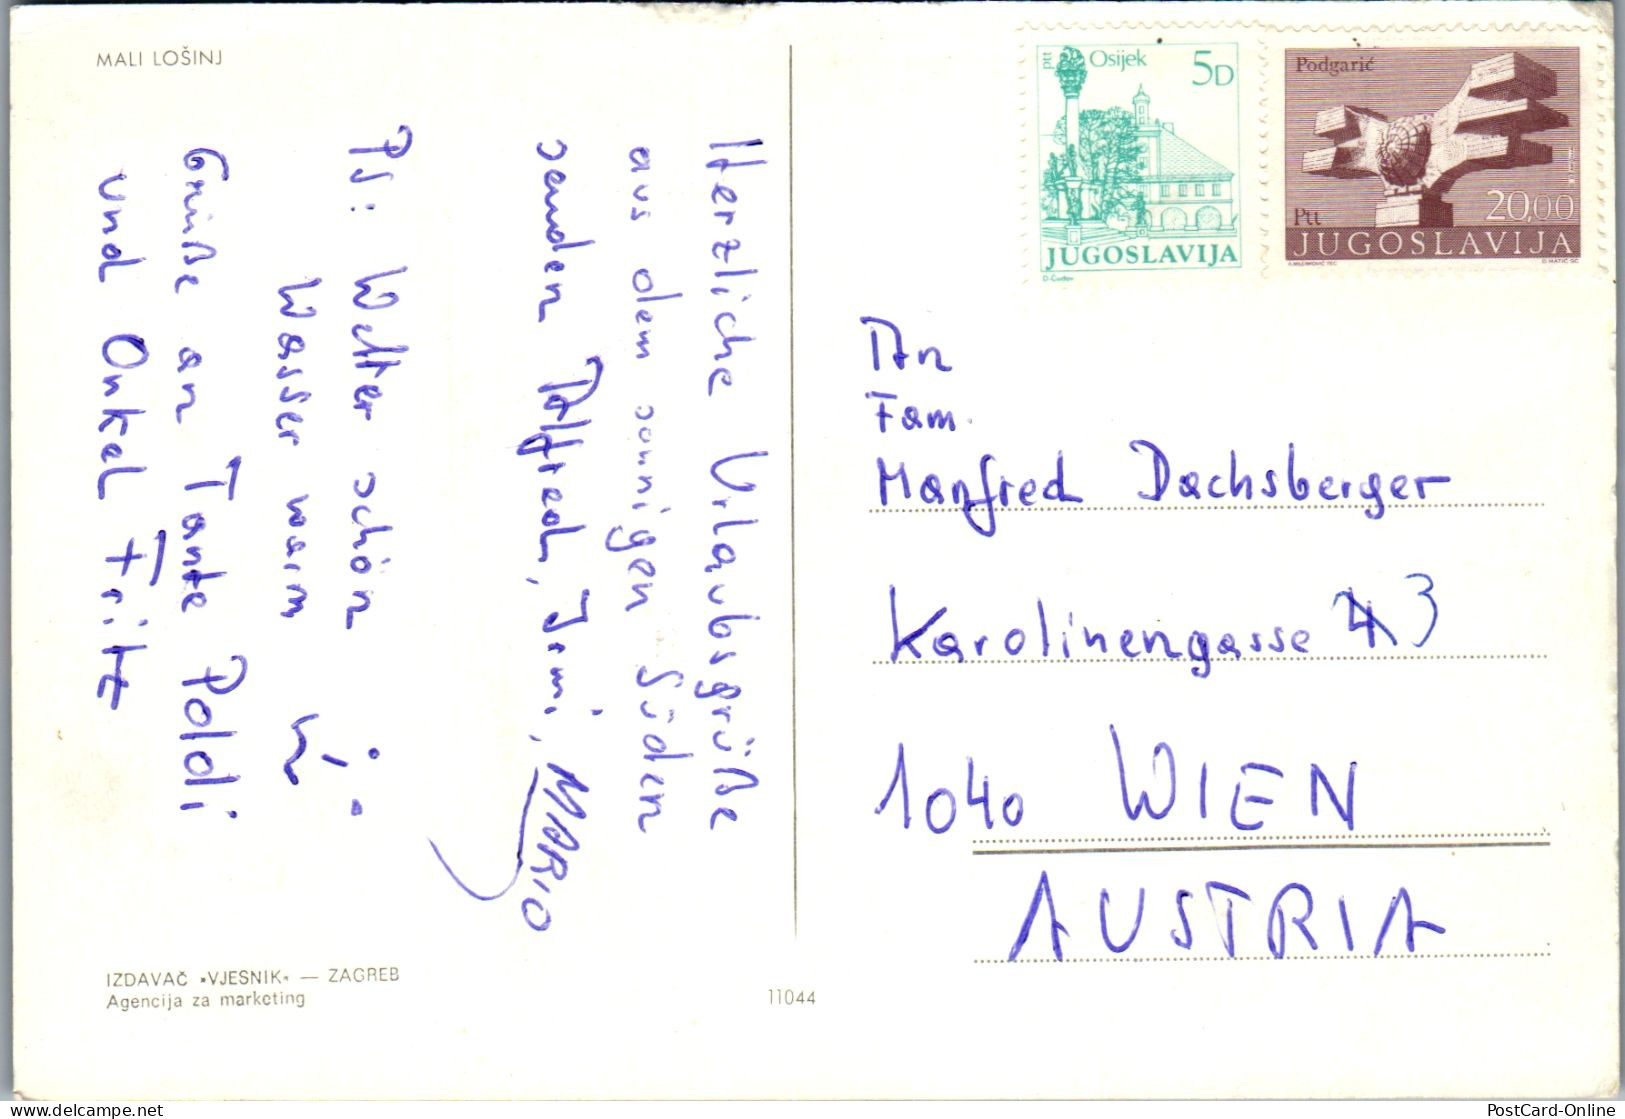 MALI LOŠINJ
Herzliche Urlaubsgrüße
aus dem sonnigen Süden
senden Irmi, MARIO
PS: Wetter schön
Wasser warm
Grüße an Tante Poldi
und Onkel Fritz
IZDAVAČ »VJESNIK« — ZAGREB
Agencija za marketing
11044
ptt Osijek 5D
JUGOSLAVIJA
D. Čudov
Podgarić
Ptt 20,00
JUGOSLAVIJA
A. MILENKOVIĆ TEC. D. MATIĆ SC.
An
Fam.
Manfred Dachsberger
Karolinengasse 3
1040 WIEN
AUSTRIA
PostCard-Online
delcampe.net